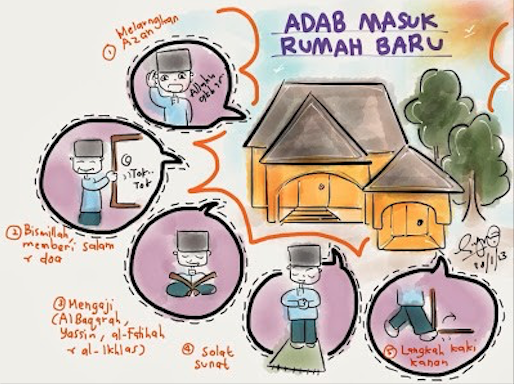 ADAB MASUK
RUMAH BARU
① Melaungkan
Azan
Allahu
akbar
Tok..
Tok
② Bismillah,
memberi salam
& doa
③ Mengaji
(Al Baqarah,
Yassin, al-Fatihah
& al-Ikhlas)
④ Solat
sunat
⑤ Langkah kaki
kanan
20/1/13